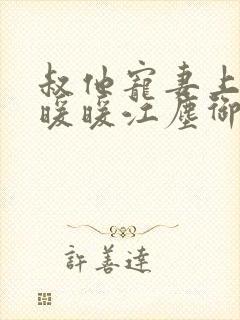 叔他寵妻上
暖暖江塵御
許善達